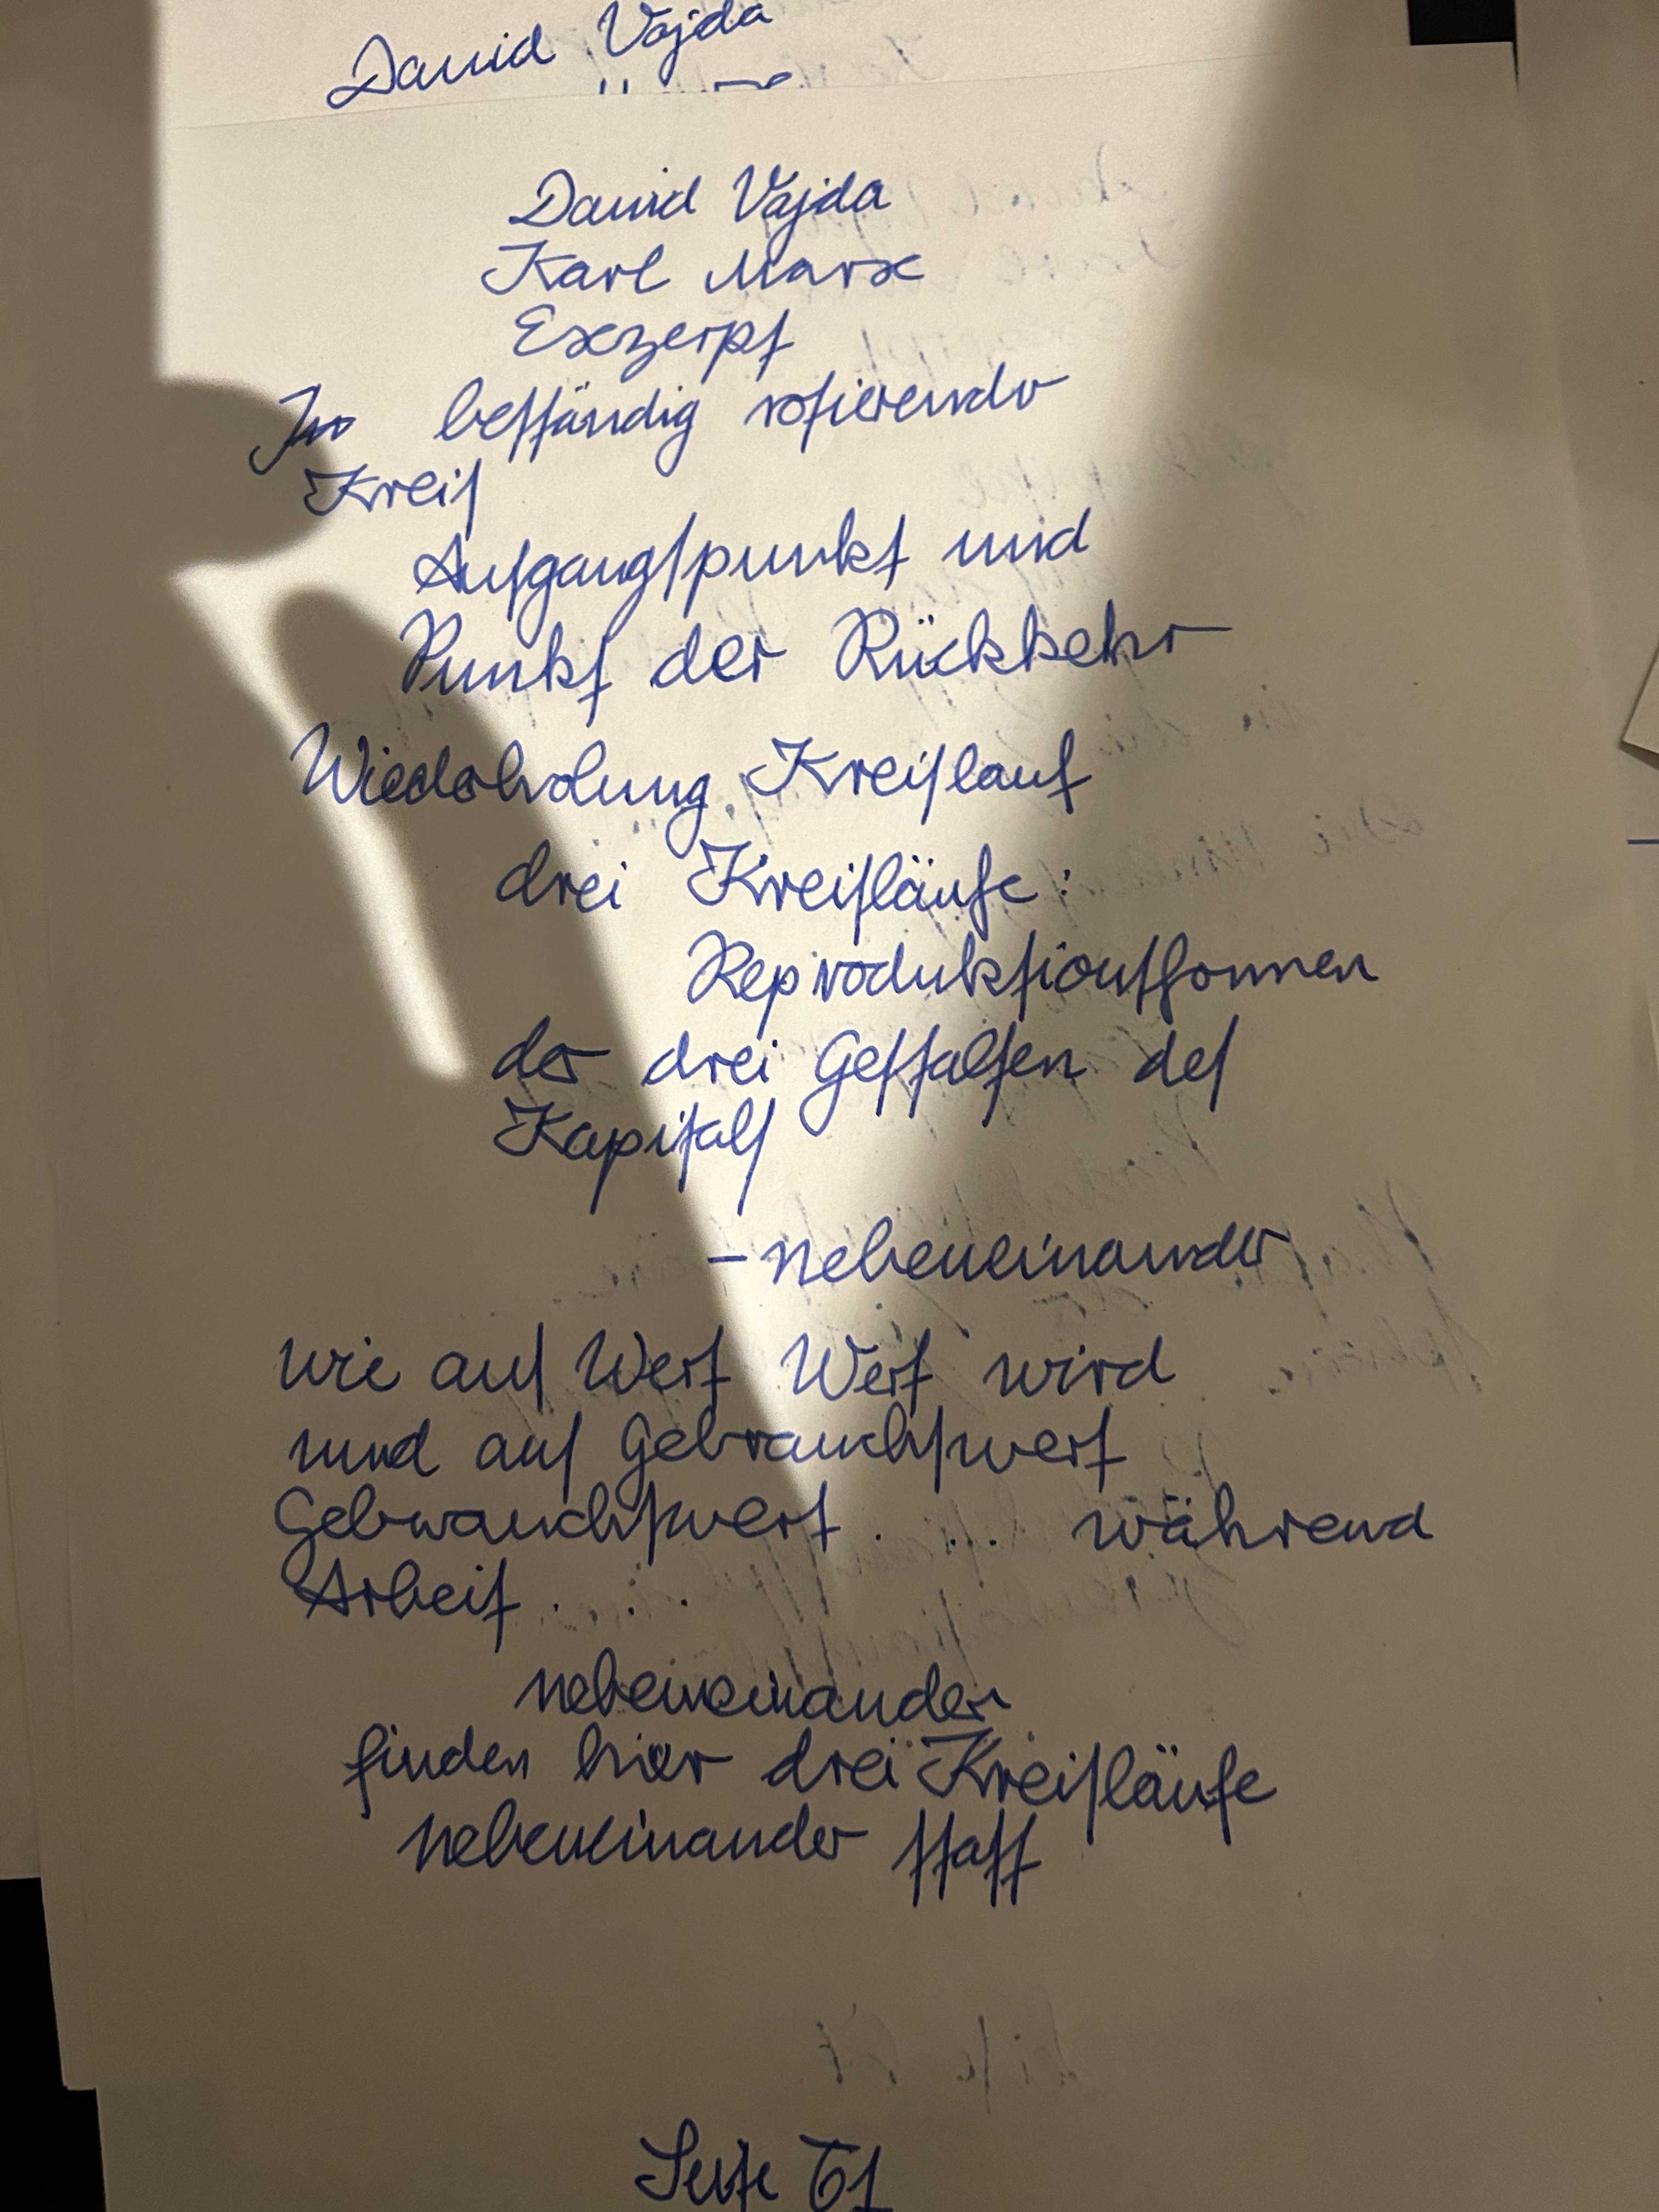 David Vajda
David Vajda
Karl Marx
Exzerpt
beständig rotierender
Kreis
Ausgangspunkt und
Punkt der Rückkehr
Wiederholung Kreislauf
drei Kreisläufe:
Reproduktionsformen
der drei Gestalten des
Kapitals
- nebeneinander
wie aus Wert Wert wird
und aus Gebrauchswert
Gebrauchswert . ... während
Arbeit . . .
nebeneinander
finden hier drei Kreisläufe
nebeneinander statt
Seite